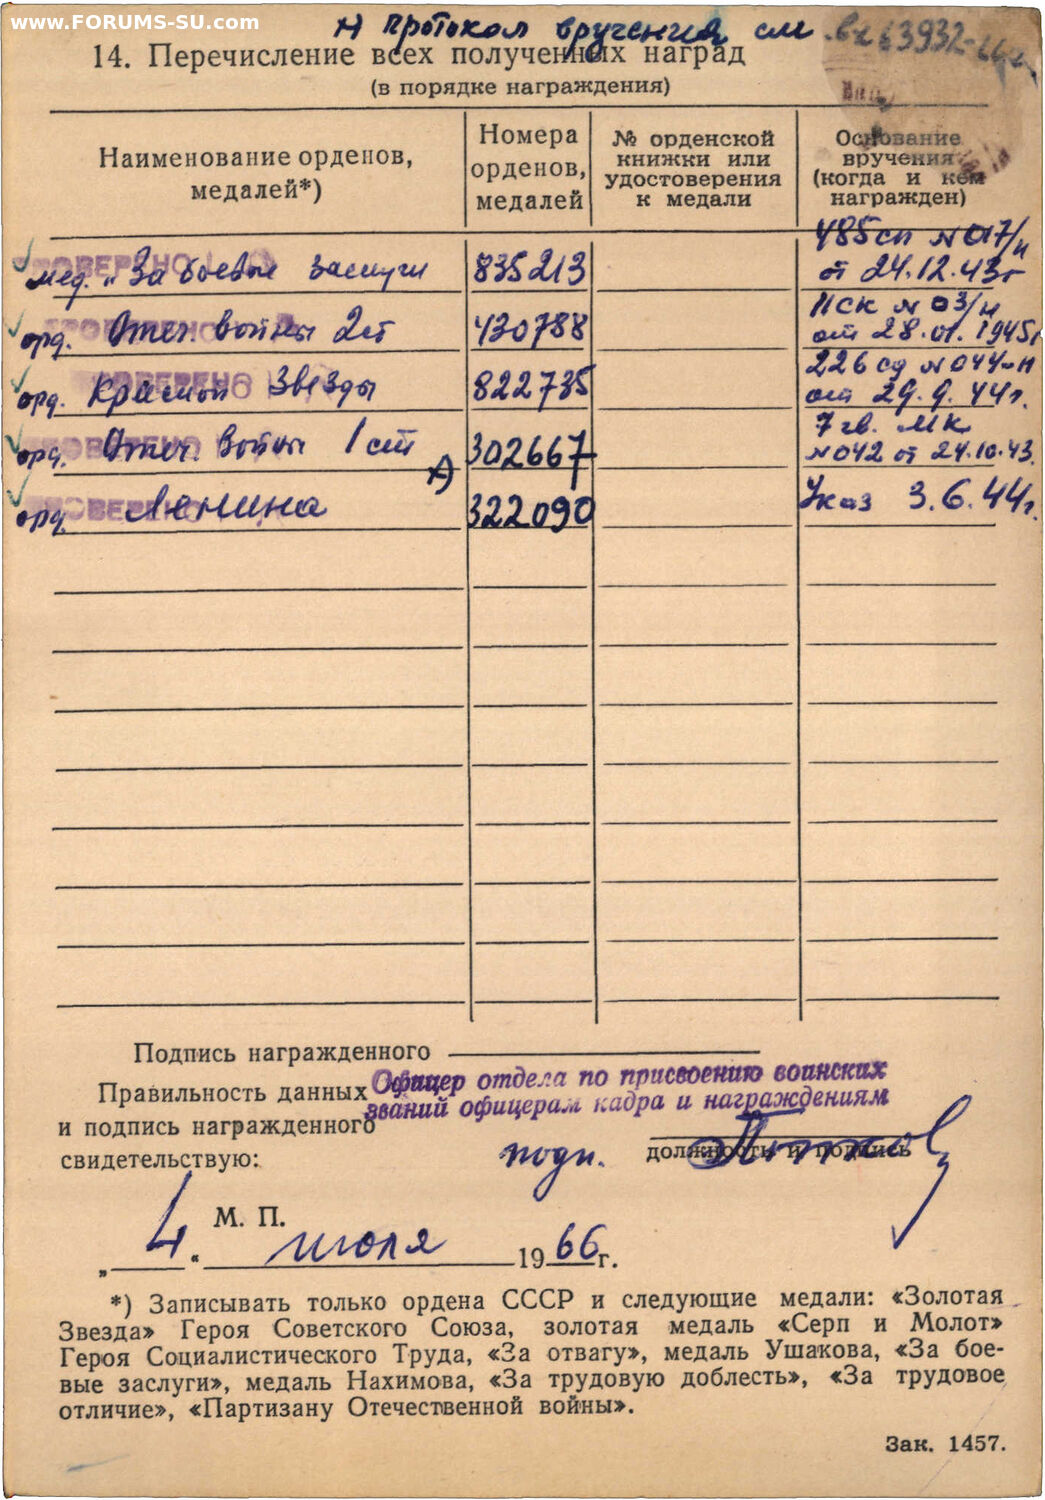 www.FORUMS-SU.com
Протокол вручения см. вх 63932-
14. Перечисление всех полученных наград
(в порядке награждения)
Наименование орденов, медалей*)
Номера орденов, медалей
№ орденской книжки или удостоверения к медали
Основание вручения (когда и кем награжден)
ПРОВЕРЕНО
мед. "За боевые заслуги 835213 485сп №017/н от 24.12.43г
ПРОВЕРЕНО
орд. Отеч. войны 2ст 430788 №03/н от 28.01.1945г
ПРОВЕРЕНО
орд. Красной Звезды 822735 226 сд №044-н от 29.9.44г.
ПРОВЕРЕНО
орд. Отеч. Войны 1 ст 302667 7 гв. МК №042 от 24.10.43.
ПРОВЕРЕНО
орд. Ленина 322090 Указ 3.6.44г.
Подпись награжденного
Правильность данных
Офицер отдела по присвоению воинских
званий офицерам кадра и награждениям
и подпись награжденного
свидетельствую:
подп.
должность и подпись
М. П.
„4“ июля 1966 г.
*) Записывать только ордена СССР и следующие медали: «Золотая
Звезда» Героя Советского Союза, золотая медаль «Серп и Молот»
Героя Социалистического Труда, «За отвагу», медаль Ушакова, «За бое-
вые заслуги», медаль Нахимова, «За трудовую доблесть», «За трудовое
отличие», «Партизану Отечественной войны».
Зак. 1457.